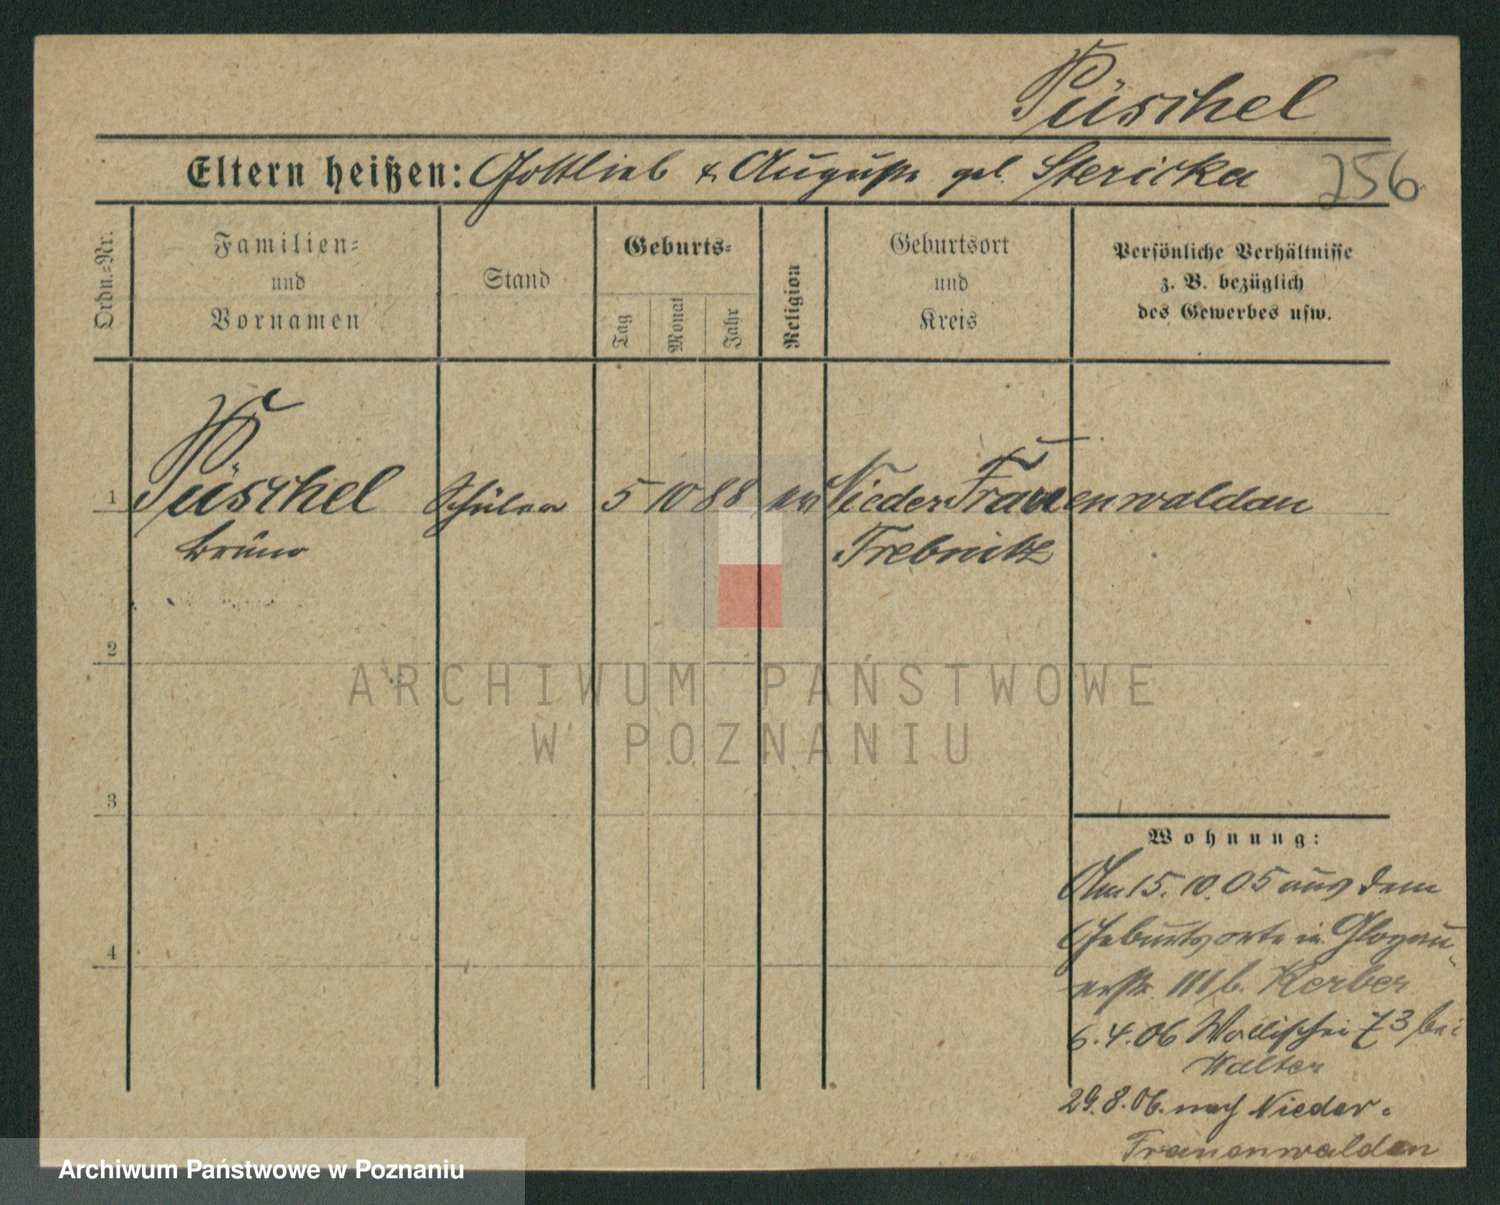 Püschel
Eltern heißen: Gottlieb & Auguste geb. Stericka
256
Ordn.-Nr.
Familien-
und
Vornamen
Stand
Geburts-
Tag
Monat
Jahr
Religion
Geburtsort
und
Kreis
Persönliche Verhältnisse
z. B. bezüglich
des Gewerbes usw.
1 Püschel Schüler 5 10 88 ev Nieder Frauenwaldau
Bruno Trebnitz
2
ARCHIWUM PAŃSTWOWE
W POZNANIU
3
Wohnung:
Am 15.10.05 aus dem
Geburtsorte in Glogau-
4
b. Kerber
6.4.06 Wallischei 73 bei
Walter
29.8.06. nach Nieder-
Frauenwalden
Archiwum Państwowe w Poznaniu